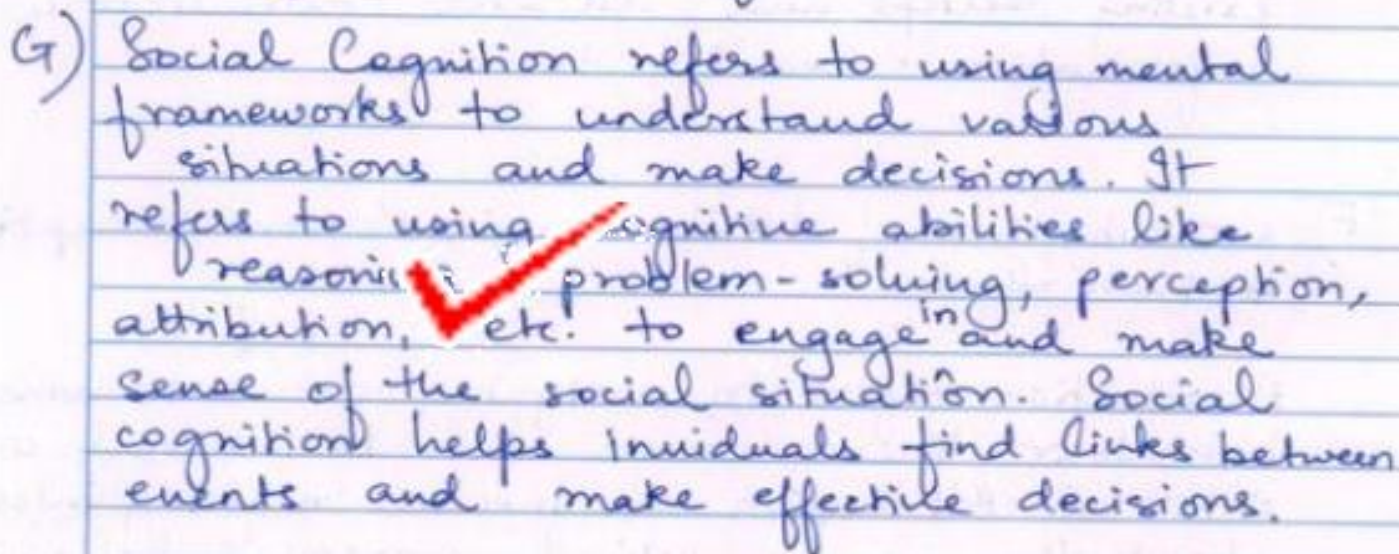 G) Social Cognition refers to using mental
frameworks to understand various
situations and make decisions. It
refers to using cognitive abilities like
reasoning, problem-solving, perception,
attribution, etc. to engage in and make
sense of the social situation. Social
cognition helps inviduals find links between
events and make effective decisions.